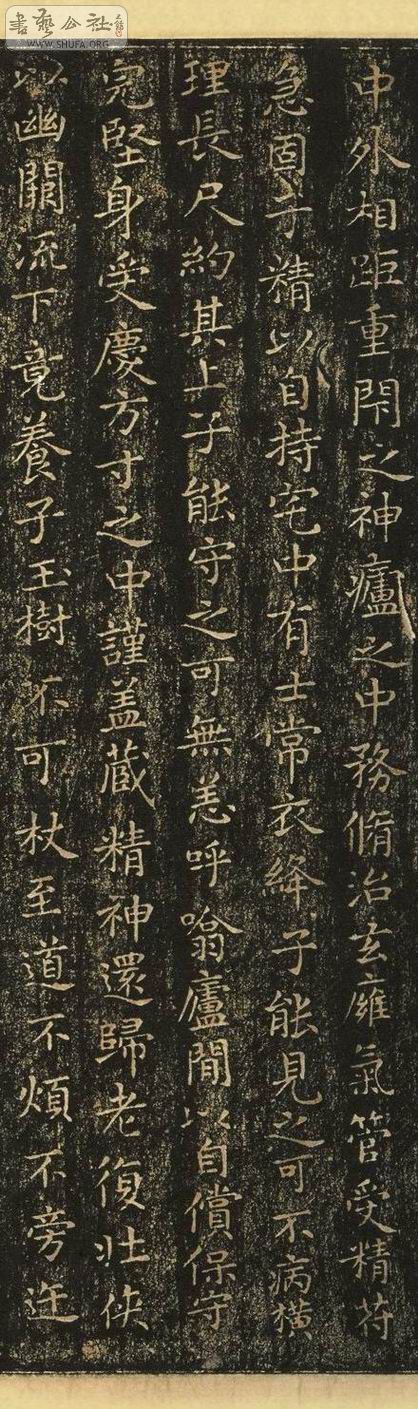 書藝公社
WWW.SHUFA.ORG
中外相距重閇之神廬之中務脩治玄廱氣管受精苻
急固子精以自持宅中有士常衣絳子能見之可不病橫
理長尺約其上子能守之可無恙呼噏廬閒以自償保守
完堅身受慶方寸之中謹盖藏精神還歸老復壯俠
以幽闕流下竟養子玉樹不可杖至道不煩不旁迕